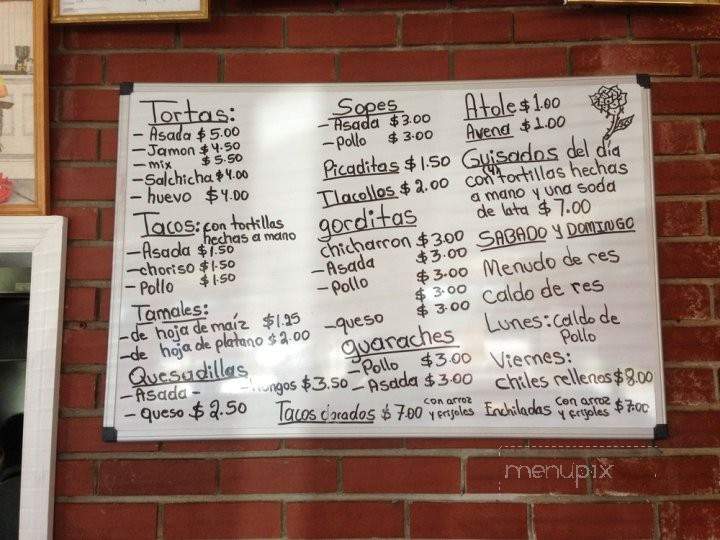 Tortas:
- Asada $5.00
- Jamon $4.50
- mix $5.50
- Salchicha $4.00
- huevo $4.00
Tacos: con tortillas
hechas a mano
- Asada $1.50
- choriso $1.50
- Pollo $1.50
Tamales:
- de hoja de maíz $1.25
- de hoja de platano $2.00
Quesadillas
- Asada -
- Hongos $3.50
- queso $2.50
Sopes
- Asada $3.00
- Pollo $3.00
Picaditas $1.50
Tlacollos $2.00
gorditas
chicharron $3.00
- Asada $3.00
- Pollo $3.00
$3.00
- queso $3.00
guaraches
- Pollo $3.00
- Asada $3.00
Tacos dorados $7.00 con arroz
y frijoles
Atole $1.00
Avena $1.00
Guisados del día
con (4) tortillas hechas
a mano y una soda
de lata $7.00
SABADO Y DOMINGO
Menudo de res
caldo de res
Lunes: caldo de
Pollo
Viernes:
chiles rellenos $8.00
Enchiladas con arroz
y frijoles $7.00
menupix